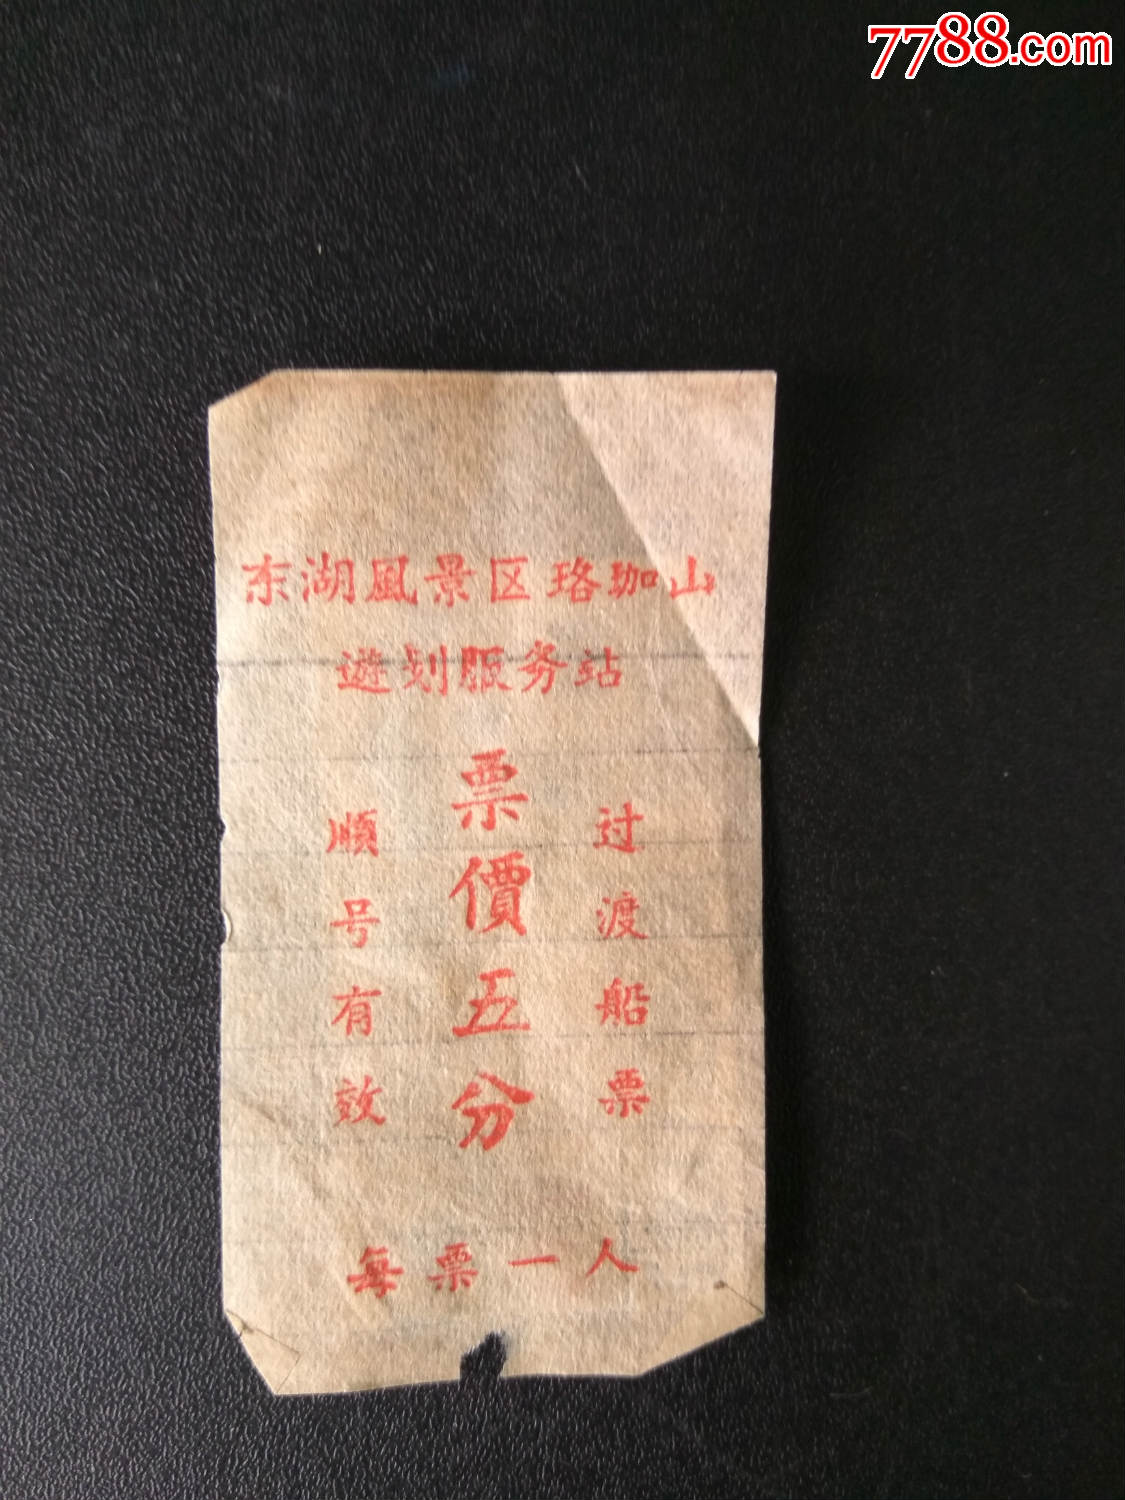 7788.com
东湖風景区珞珈山
遊划服务站
过渡船票
票價五分
順号有效
每票一人